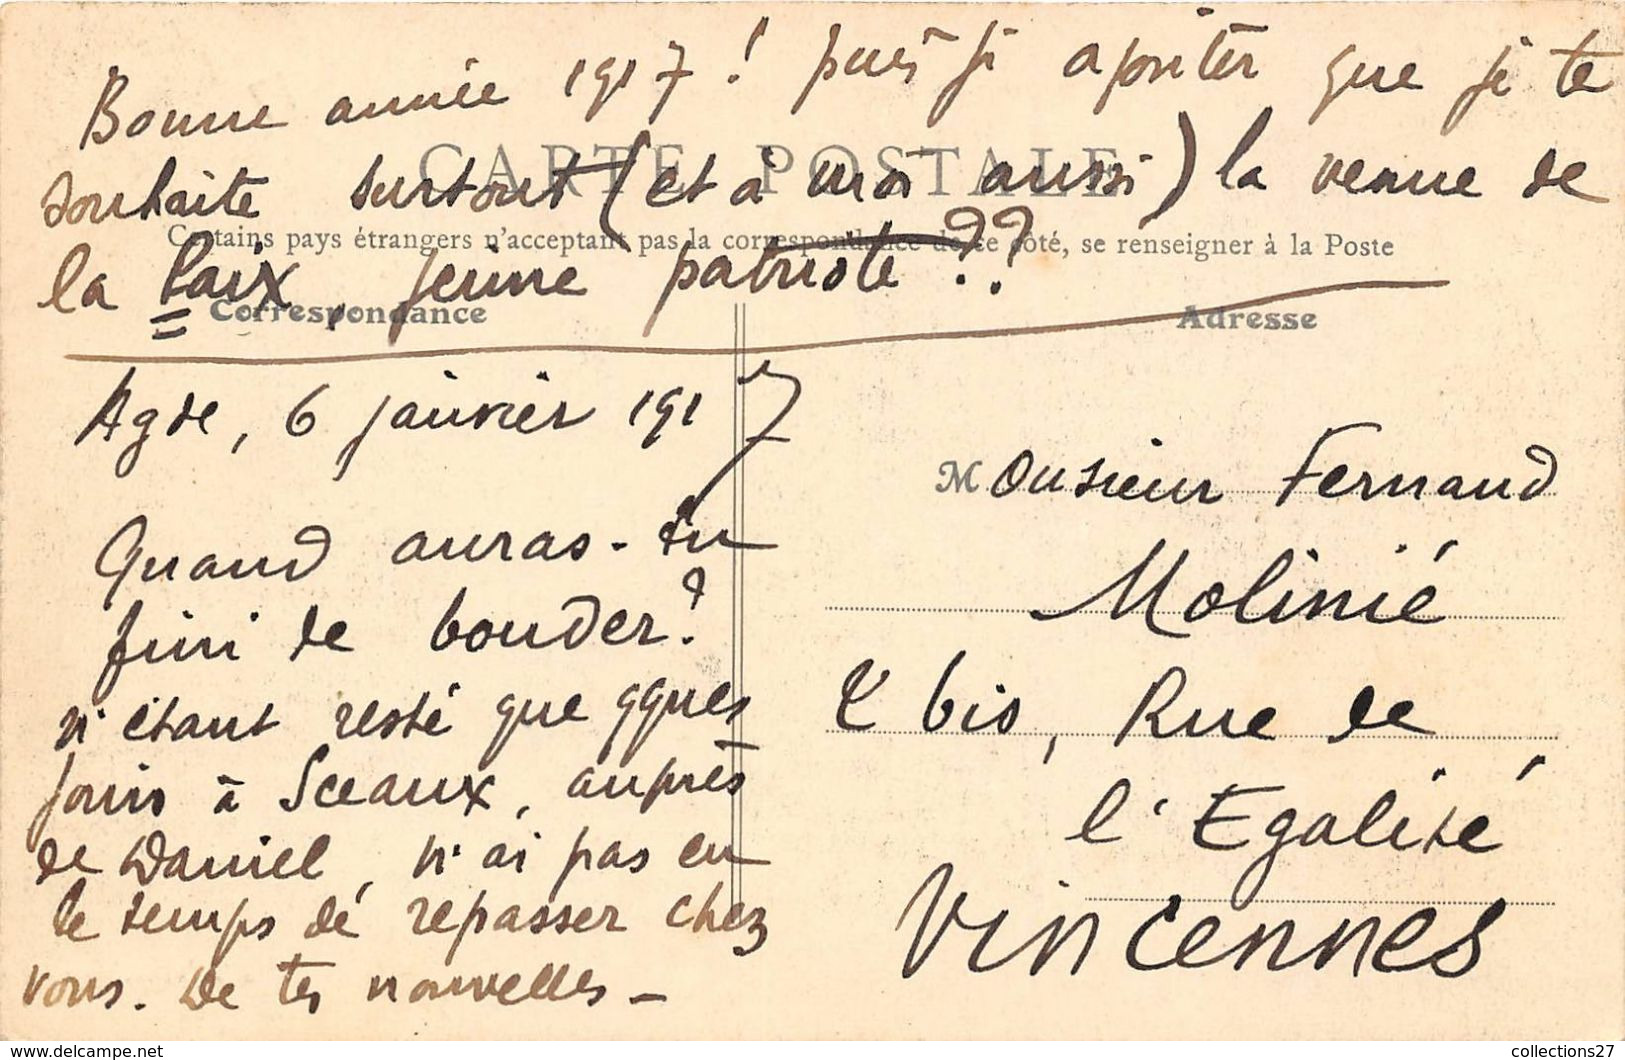 Bonne année 1917 ! puis je ajouter que je te
CARTE POSTALE
souhaite surtout (et à moi aussi) la venue de
Certains pays étrangers n'acceptant pas la correspondance de ce côté, se renseigner à la Poste
la Paix, jeune patriote ??
Correspondance
Adresse
Agde, 6 janvier 1917
Quand auras-tu
fini de bouder?
n'étant resté que qques
jours à Sceaux, auprès
de Daniel, n'ai pas eu
le temps de repasser chez
vous. De tes nouvelles –
Monsieur Fernand
Molinié
bis, Rue de
l'Egalité
Vincennes
collections27